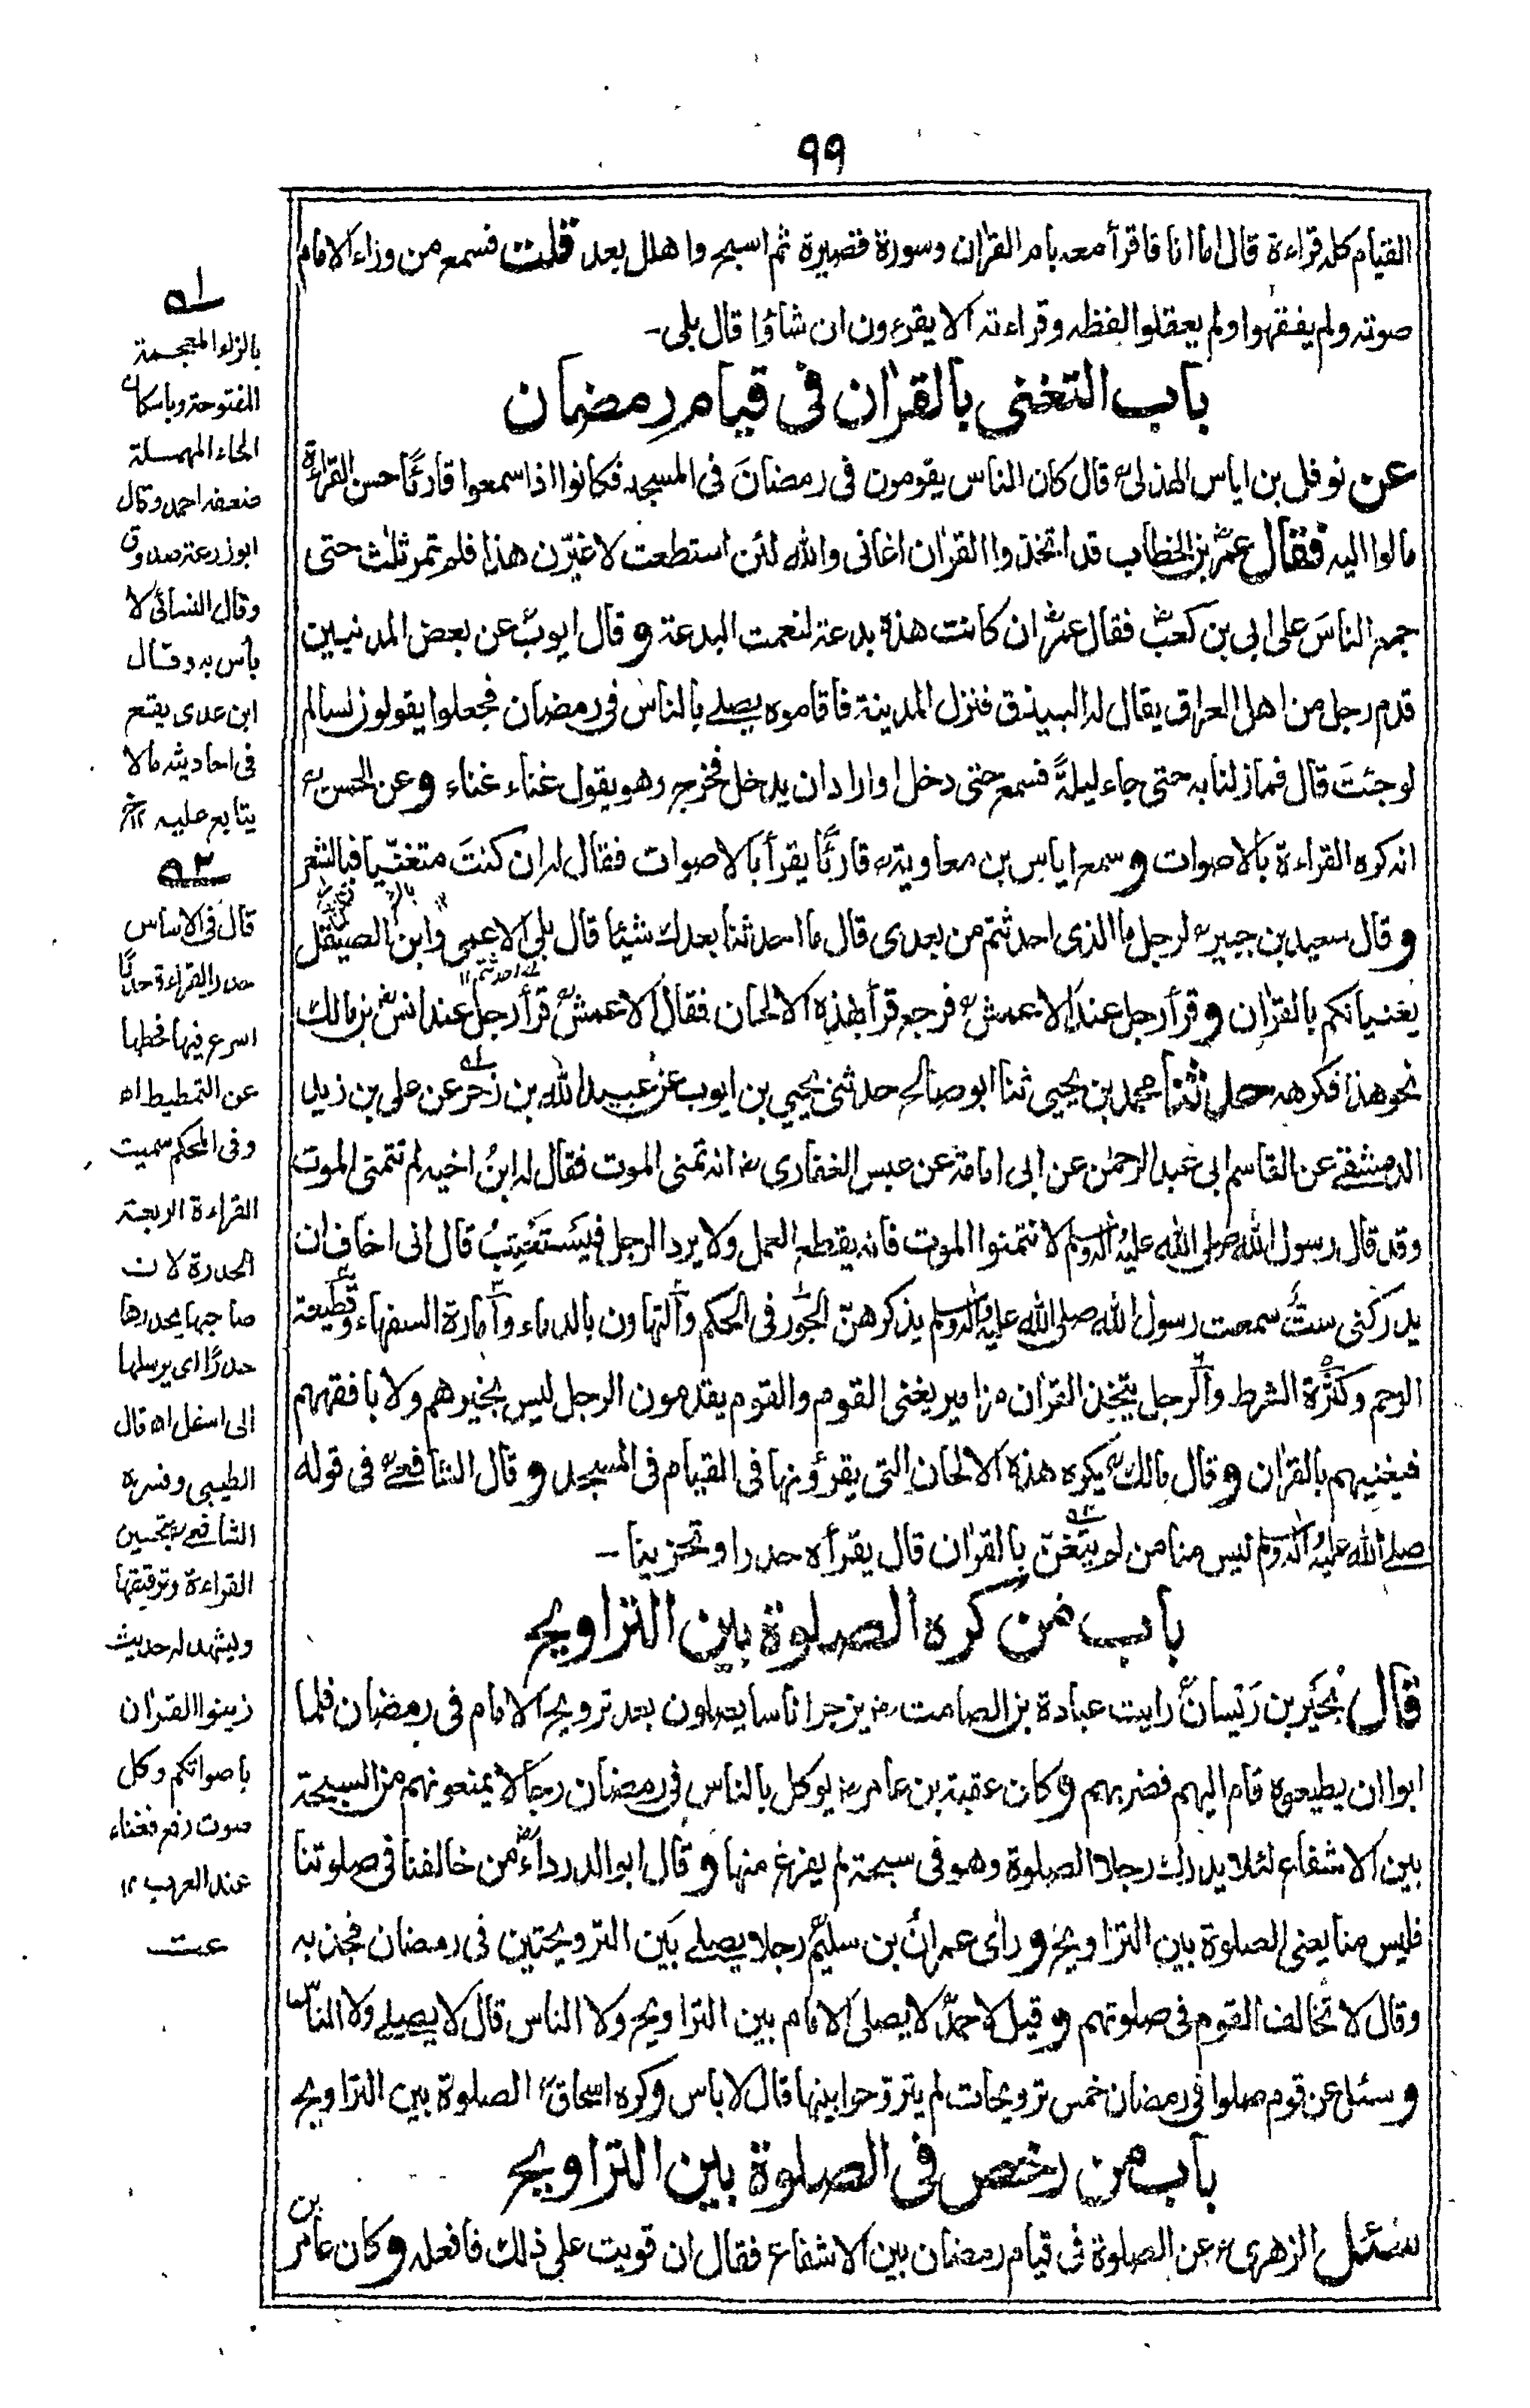 ٩٩
القيام كله قراءة قال اما انا فاقرأ معه بام القرآن وسورة قصيرة ثم اسبح واهلل بعد قلت فسمع من وراء الامام
صوته ولم يفقهوا ولم يعقلوا لفظه وقراءته الا يقرءون ان شاؤا قال بلى-
باب التغنى بالقرآن فى قيام رمضان
عن نوفل بن اياس الهذلىؒ قال كان الناس يقومون فى رمضانَ فى المسجد فكانوا اذا سمعوا قارئًا حسن القراءة
مالوا اليه فقال عمرؓ بن الخطاب قد اتخذوا القرآن اغانى والله لئن استطعت لاغيّرن هذا فلم تمر ثلث حتى
جمع الناسَ على ابى بن كعبؓ فقال عمرؓ ان كانت هذه بدعة لنعمت البدعة وقال ايوبؒ عن بعض المدنيين
قدم رجل من اهل العراق يقال له البيذق فنزل المدينة فاقاموه يصلے بالناس فى رمضان فجعلوا يقولون لسالم
لو جئتَ قال فمازلنا به حتى جاء ليلةً فسمع حتى دخل او اراد ان يدخل فخرج وهو يقول غناء غناء وعن الحسنؒ
انه كره القراءة بالاصوات وسمع اياس بن معاويةؒ قارئًا يقرأ بالاصوات فقال له ان كنتَ متغنّيا فبالشعر
وقال سعيد بن جبيرؒ لرجل ما الذى احدثتم من بعدى قال ما احدثنا بعدك شيئا قال بلى الاعمى وابن الصيقل
يغنيانكم بالقرآن وقرأ رجل عند الاعمشؒ فرجع قرأ بهذه الالحان فقال الاعمشؒ قرأ رجل عند انسؓ بن مالك
نحو هذا فكرهه حدثنا محمد بن يحيى ثنا ابو صالح حدثنى يحيي بن ايوب عن عبيد الله بن زَحر عن على بن زيد
الدمشقے عن القاسم ابى عبد الرحمٰن عن ابى امامة عن عبس الغفارىؓ انه تمنى الموت فقال له ابنُ اخيه لم تتمنى الموت
وقد قال رسول الله صلى الله عليه وآله وسلم لا تتمنوا الموت فانه يقطع العمل ولا يرد الرجل فيَستَعْتِبُ قال انى اخاف ان
يدركنى ستٌ سمعت رسول الله صلى الله عليه وآله وسلم يذكرهنّ الجَوْر فى الحكم والتهاون بالدماء وامارة السفهاء وقطيعة
الرحم وكثرة الشرط والرجل يتخذ القرآن مزامير يغنى القوم والقوم يقدمون الرجل ليس بخيرهم ولا بافقههم
فيغنيهم بالقرآن وقال مالكؒ يكره هذه الالحان التى يقرؤنها فى القيام فى المسجد وقال الشافعےؒ فى قوله
صلے الله عليه وآله وسلم ليس منا من لم يتغن بالقرآن قال يقرأه حدرا وتحزينا -
باب من كره الصلوة بين التراويح
قال بُحَير بن رَيسانؒ رايت عبادة بن الصامتؓ يزجر اناسا يصلون بعد ترويح الامام فى رمضان فلما
ابوا ان يطيعوه قام اليهم فضربهم وكان عقبة بن عامرؓ يوكل بالناس فى رمضان رجالا يمنعونهم من السبحة
بين الاشفاع لئلا يدرك رجلا الصلوة وهو فى سبحة لم يفرغ منها وقال ابو الدرداءؓ من خالفنا فى صلوتنا
فليس منا يعنى الصلوة بين التراويح ورأى عمران بن سليمؒ رجلا يصلے بَين الترويحتين فى رمضان فجذبه
وقال لا تخالف القوم فى صلوتهم وقيل لاحمدؒ لا يصلى الامام بين التراويح ولا الناس قال لا يصلے ولا الناس
وسئل عن قوم صلوا فى رمضان خمس ترويحات لم يتروّحوا بينها قال لا باس وكره اسحاقؒ الصلوة بين التراويح
باب من رخص فى الصلوة بين التراويح
سئل الزهرىؒ عن الصلوة فى قيام رمضان بين الاشفاع فقال ان قويت على ذلك فافعله وكان عامر بن
ـه١
بالزاء المعجمة
المفتوحة وباسكان
الحاء المهملة
ضعفه احمد وقال
ابو زرعة صدوق
وقال النسائى لا
بأس به وقال
ابن عدى يقع
فى احاديثه مالا
يتابع عليه ١٢
ـه٢
قال فى الاساس
حدر القراءة حدرًا
اسرع فيها فحطها
عن التمطيط اه
وفى المحكم سميت
القراءة السريعة
الحدرة لان
صاحبها يحدرها
حدرًا اى يرسلها
الى اسفل اه قال
الطيبى وفسره
الشافعےؒ بتحسين
القراءة وترقيقها
ويشهد له حديث
زينوا القرآن
باصواتكم وكل
صوت رفع فغناء
عند العرب ١٢